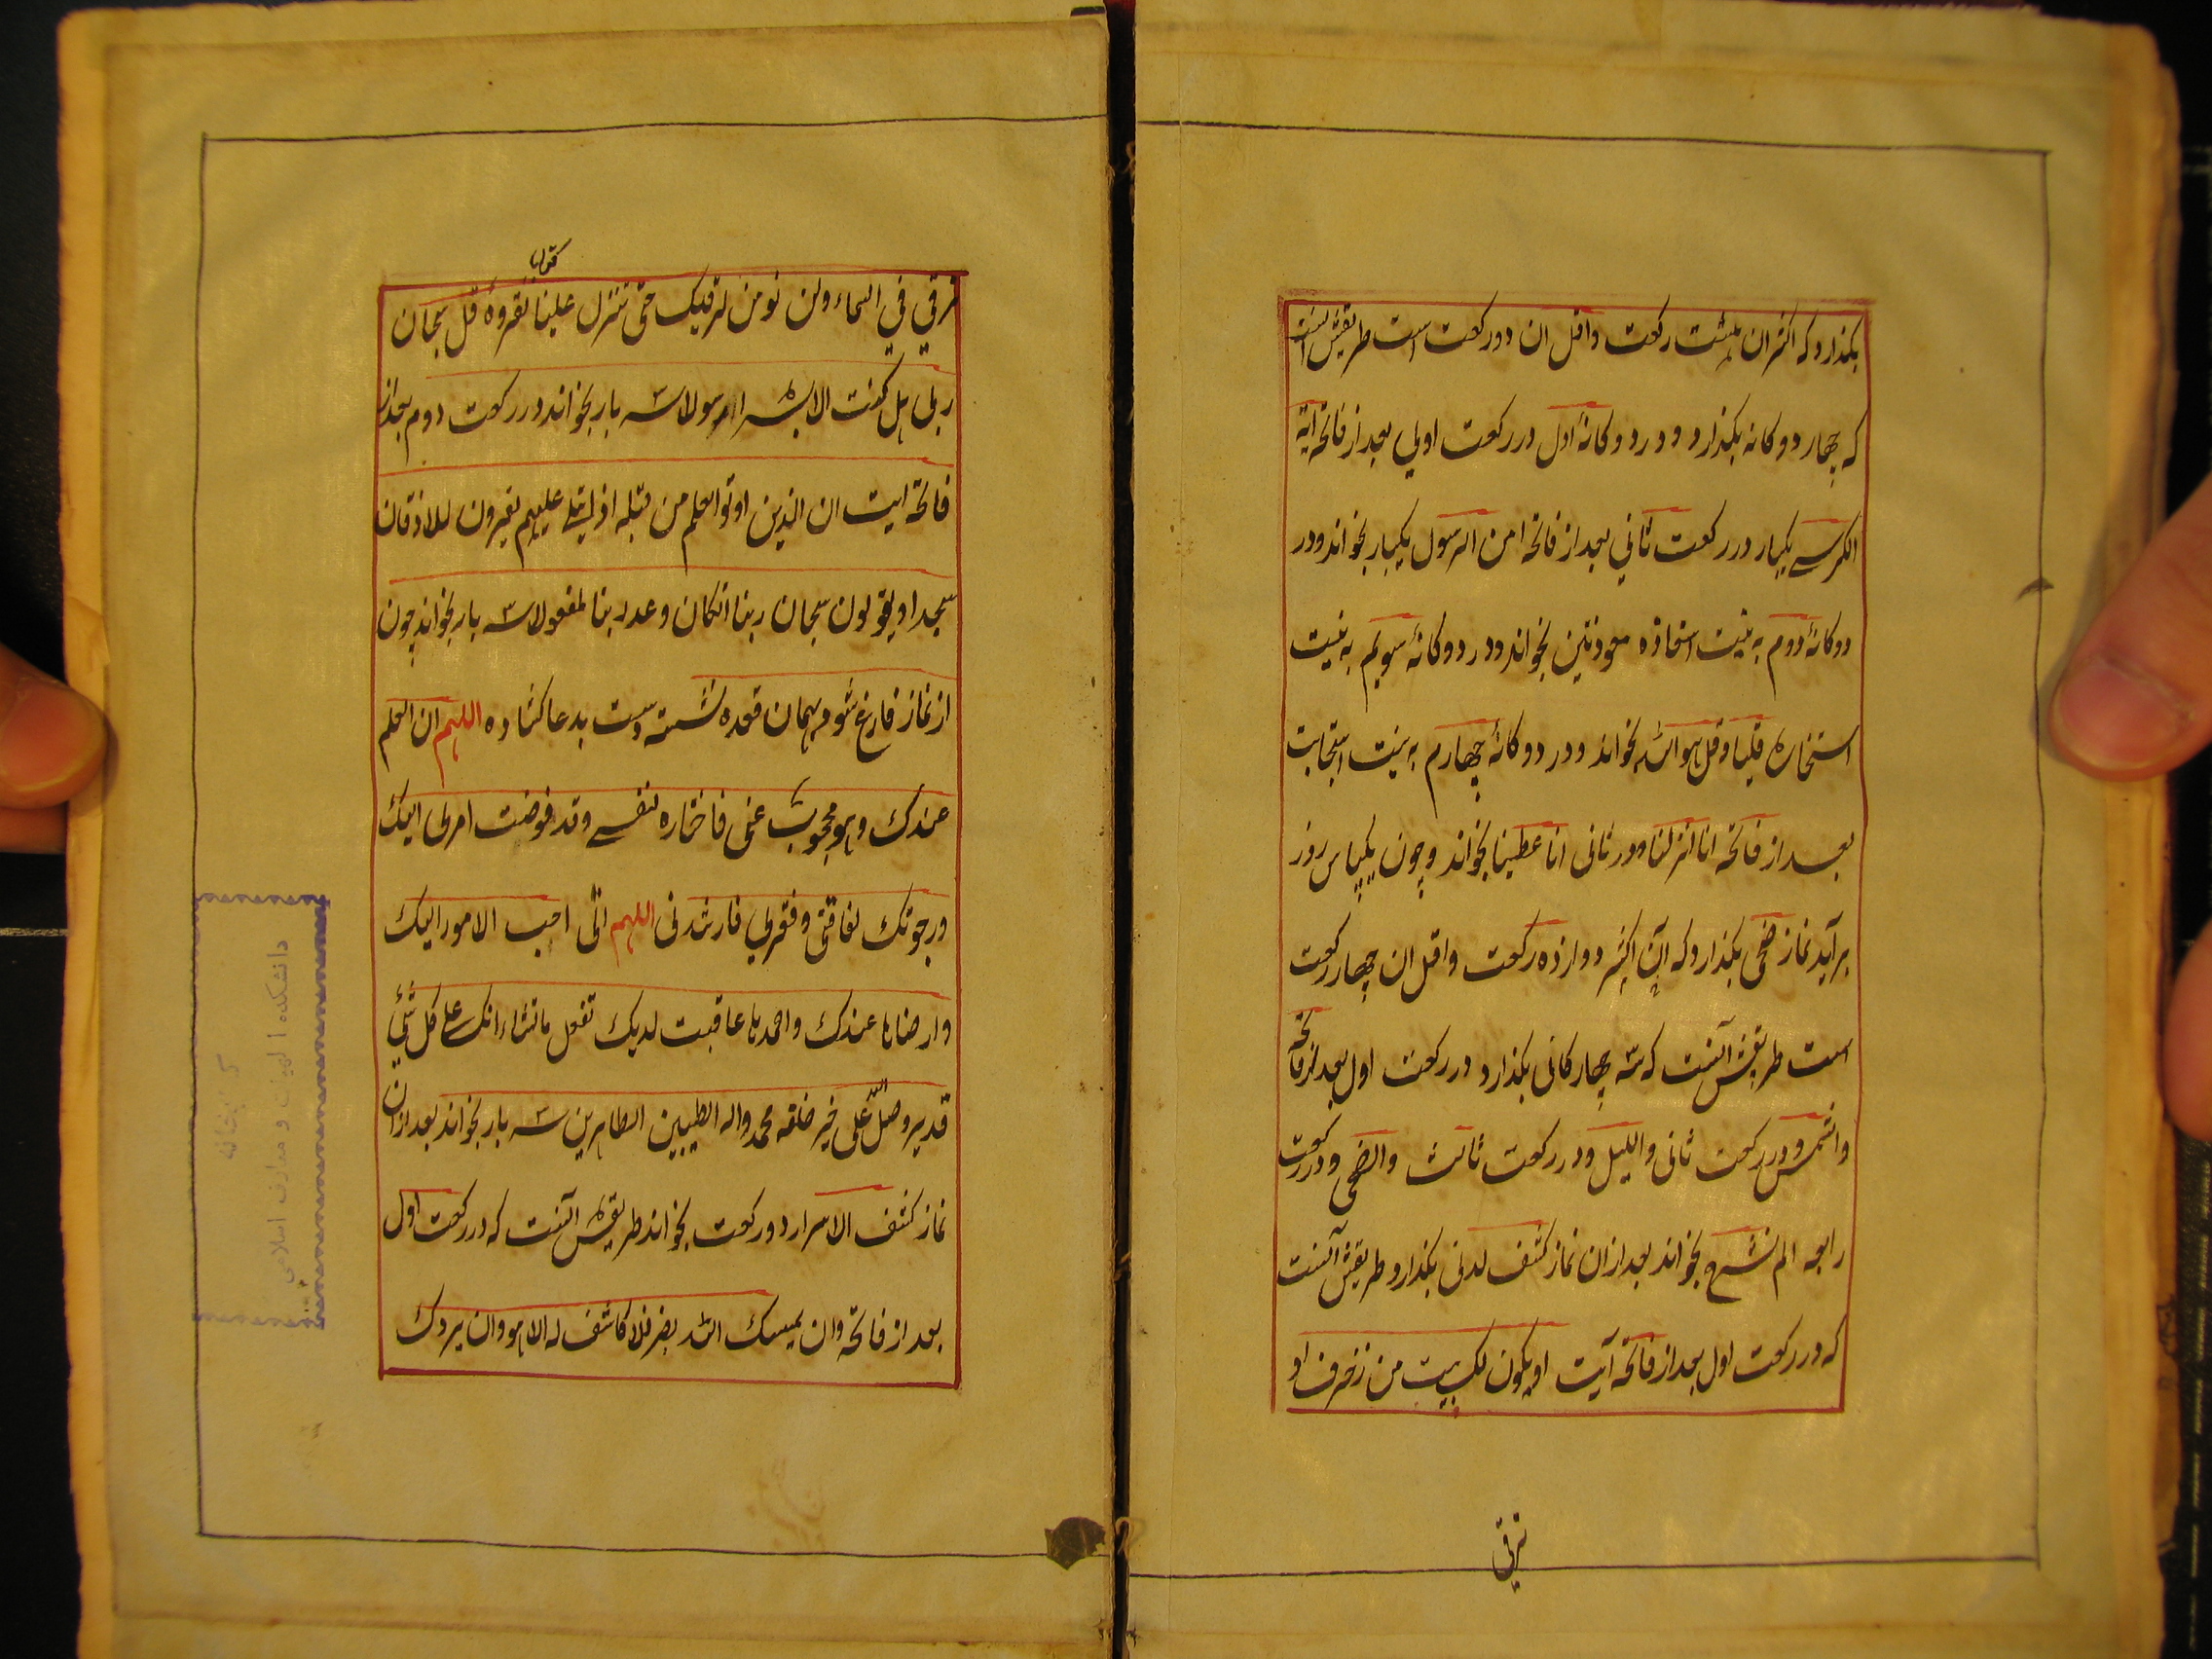 بکذارد که اکثر ان هشت رکعت واقل ان دو رکعت است طریقش اینست
که چهار دوکانه بکذارد و در دوکانهٔ اول در رکعت اولی بعد از فاتحه ایة
الکرسے یکبار در رکعت ثانی بعد از فاتحه امن الرسول یکبار بخواند و در
دوکانهٔ دوم به نیت استعاذه معوذتین بخواند و در دوکانهٔ سویم به نیت
استخاره قلیا و قل هو الله بخواند و در دوکانهٔ چهارم به نیت استجابت
بعد از فاتحه انا انزلنا و در ثانی انا عطینا بخواند و چون یکپاس روز
برآید نماز ضحی بکذارد که آن اکثر دوازده رکعت واقل ان چهار رکعت
است طریقش آنست که سه چهار کانی بکذارد در رکعت اول بعد از فاتحه
والشمس و در رکعت ثانی واللیل و در رکعت ثالث والضحی و در رکعت
رابعه الم نشرح بخواند بعد از ان نماز کشف لدنی بکذارد طریقش آنست
که در رکعت اول بعد از فاتحه آیت او یکون لک بیت من زخرف او
ترقی
کتابا
ترقی فی السماء ولن نومن لرقیک حتی تنزل علینا نقروه قل سبحان
ربی هل کنت الا بشرا رسولا سه بار بخواند و در رکعت دوم بعد از
فاتحه ایت ان الذین اوتوا العلم من قبله اذا یتلے علیهم یخرون للاذقان
سجدا و یقولون سبحان ربنا انکان وعد ربنا لمفعولا سه بار بخواند چون
از نماز فارغ شود بهمان قعده نشسته دست بدعا کشاده اللهم ان العلم
عندک وهو محجوب عنی فاختاره لنفسے وقد فوضت امری الیک
ورجوتک لفاقتی وفقری فارشدنی اللهم انی احب الامور الیک
وارضاها عندک واحمدها عاقبت لدیک تفعل ماتشاء انک علی کل شیٔ
قدیر وصل الله علی خیر خلقه محمد واله الطیبین الطاهرین سه بار بخواند بعد از ان
نماز کشف الاسرار دو رکعت بخواند طریقش آنست که در رکعت اول
بعد از فاتحه وان یمسک الله بضر فلا کاشف له الا هو وان یردک
دانشکده الهیات و معارف اسلامی
کتابخانه